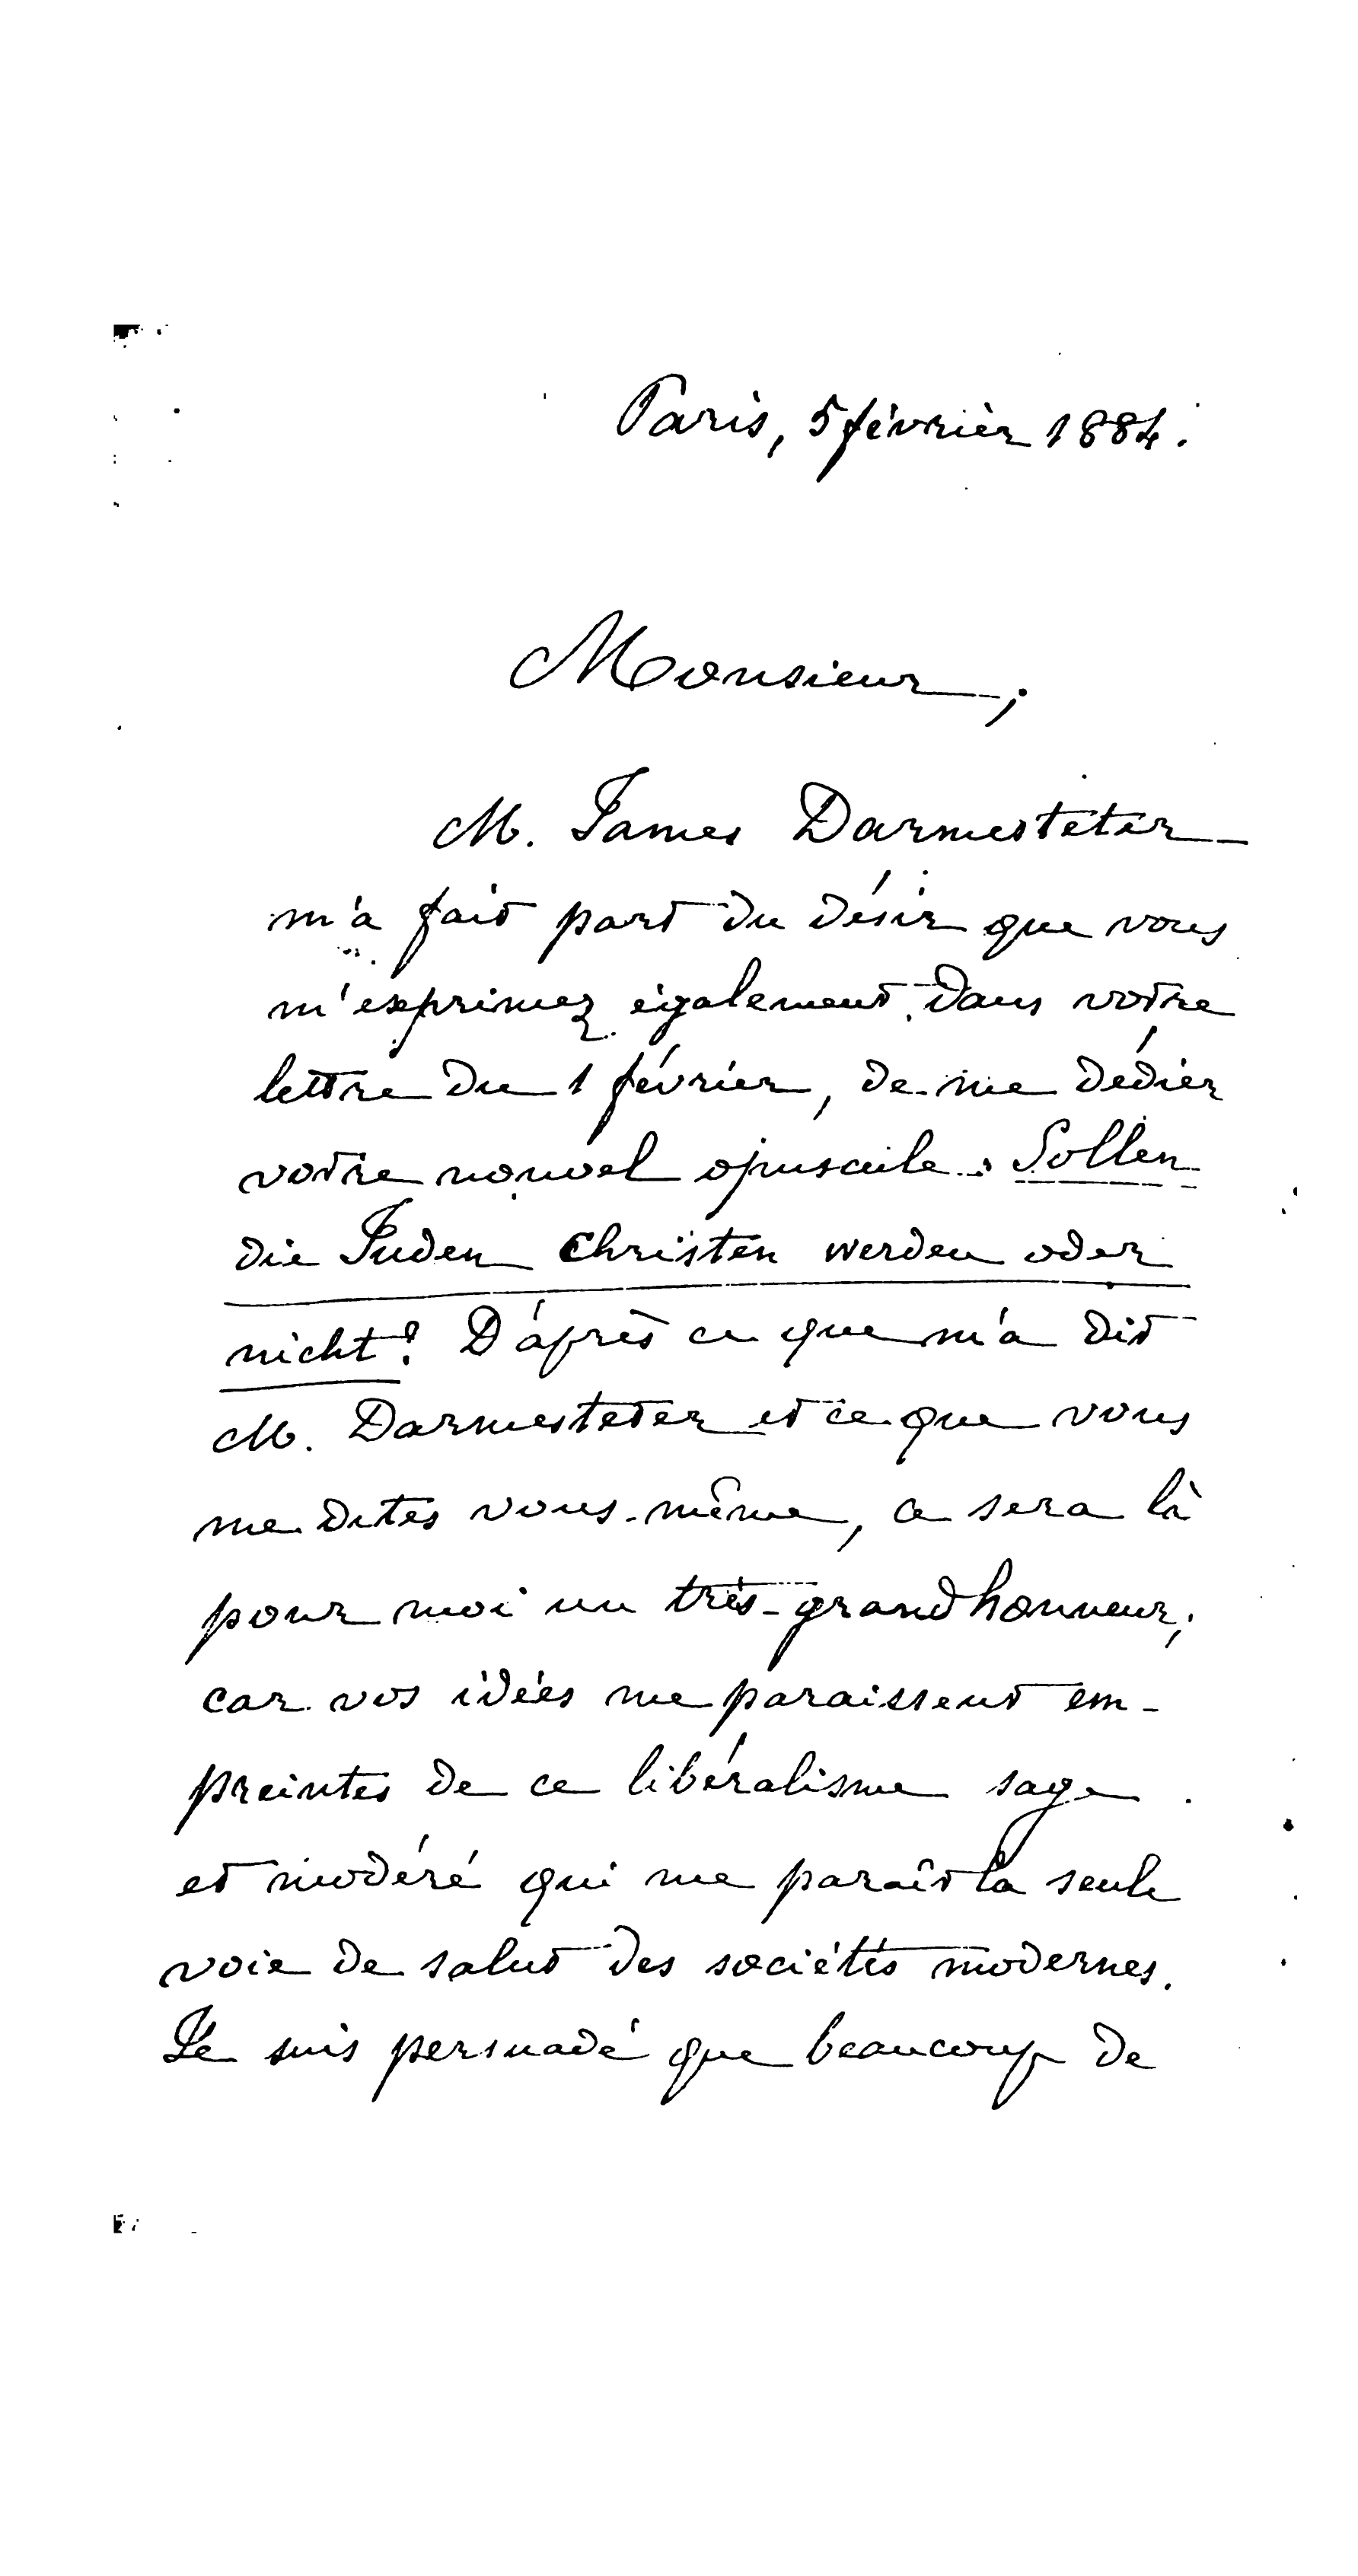 Paris, 5 février 1884.
Monsieur,
M. James Darmesteter
m'a fait part du désir que vous
m'exprimez également dans votre
lettre du 1 février, de me dédier
votre nouvel opuscule : Sollen
die Juden Christen werden oder
nicht? D'après ce que m'a dit
M. Darmesteter et ce que vous
me dites vous-même, ce sera là
pour moi un très-grand honneur,
car vos idées me paraissent em-
preintes de ce libéralisme sage
et modéré qui me paraît la seule
voie de salut des sociétés modernes.
Je suis persuadé que beaucoup de